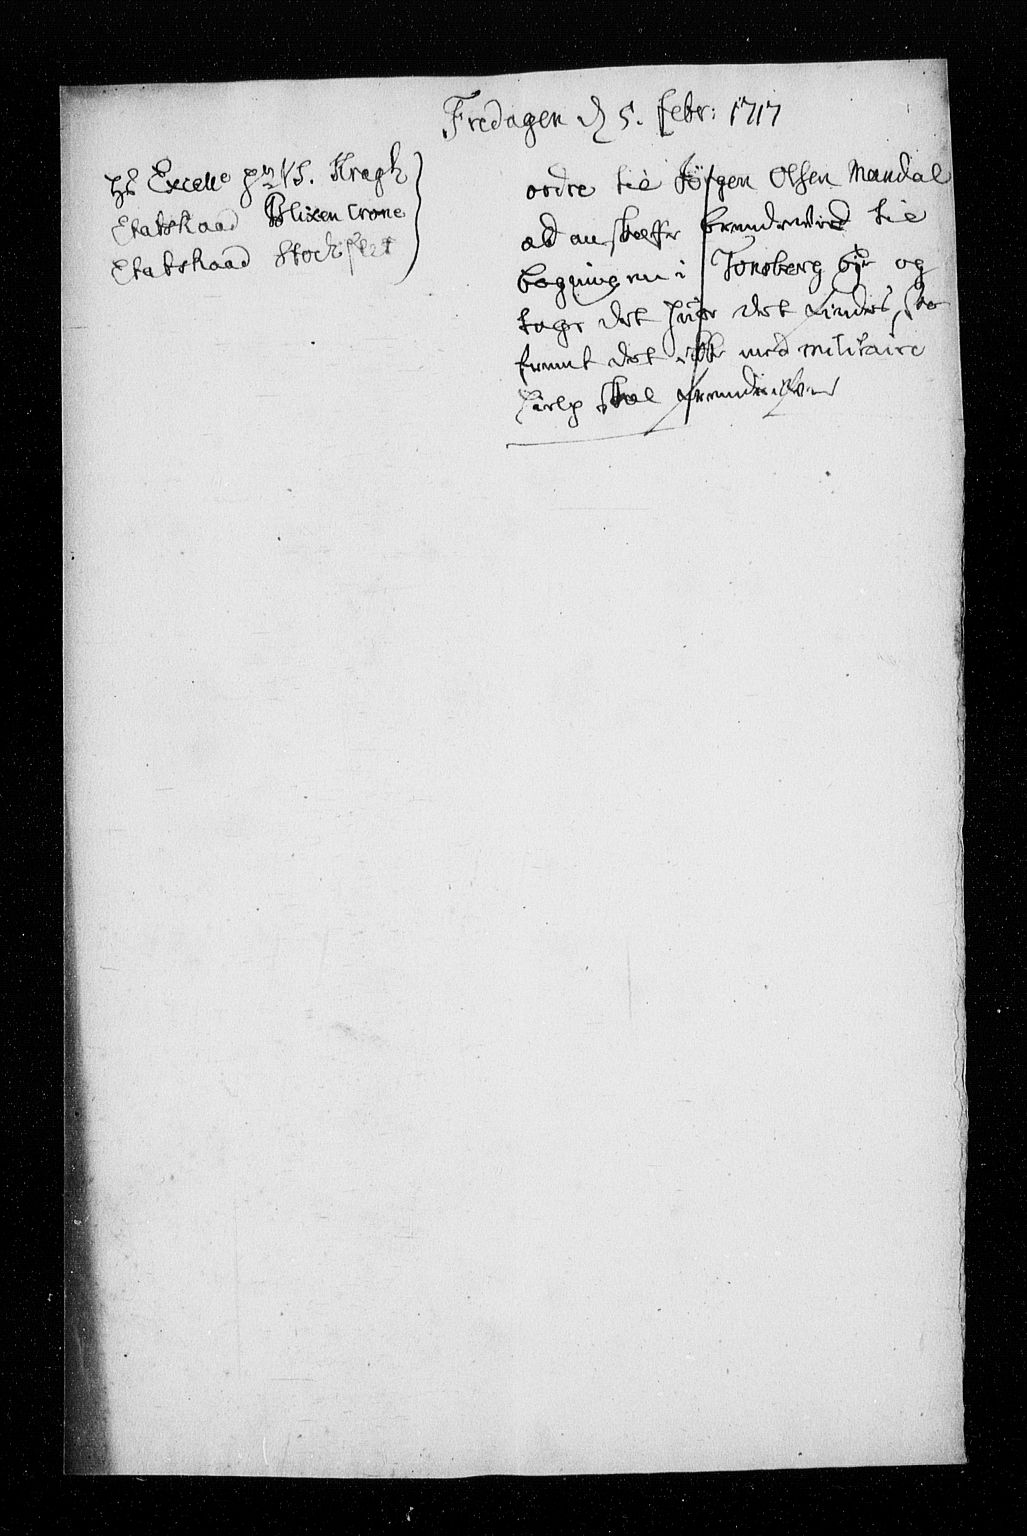 Fredagen d 5. Febr: 1717
Hs Excelle Hr VS. Kragh
Etatsraad Blixencrone
Etatsraad Stochflet
ordre til Jørgen Olsen Mandal
at anskaffe brendeved til
bagningen i Tonsberg bye og
tage det huor det findes, saa
fremt det icke med militaire
hielp skal